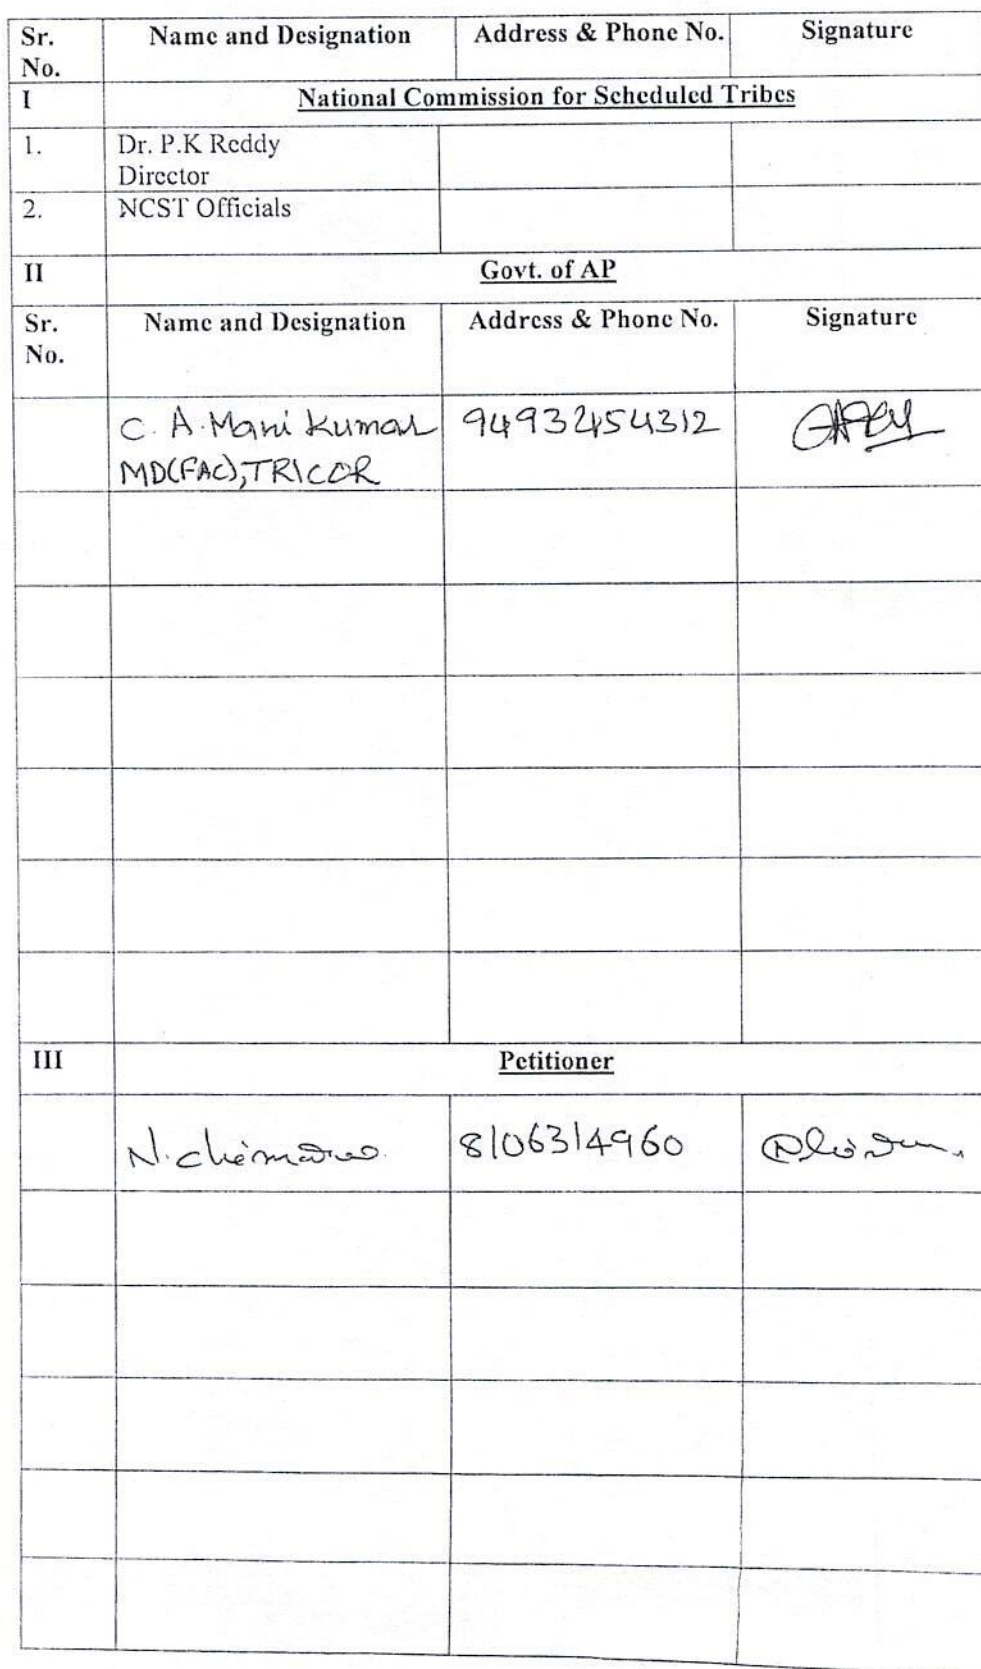 Sr. No. Name and Designation Address & Phone No. Signature
I National Commission for Scheduled Tribes
1. Dr. P.K Reddy
Director
2. NCST Officials
II Govt. of AP
Sr. No. Name and Designation Address & Phone No. Signature
C. A. Mani Kumar 9493454312
MD(FAC), TRICOR
III Petitioner
N. 8106314960